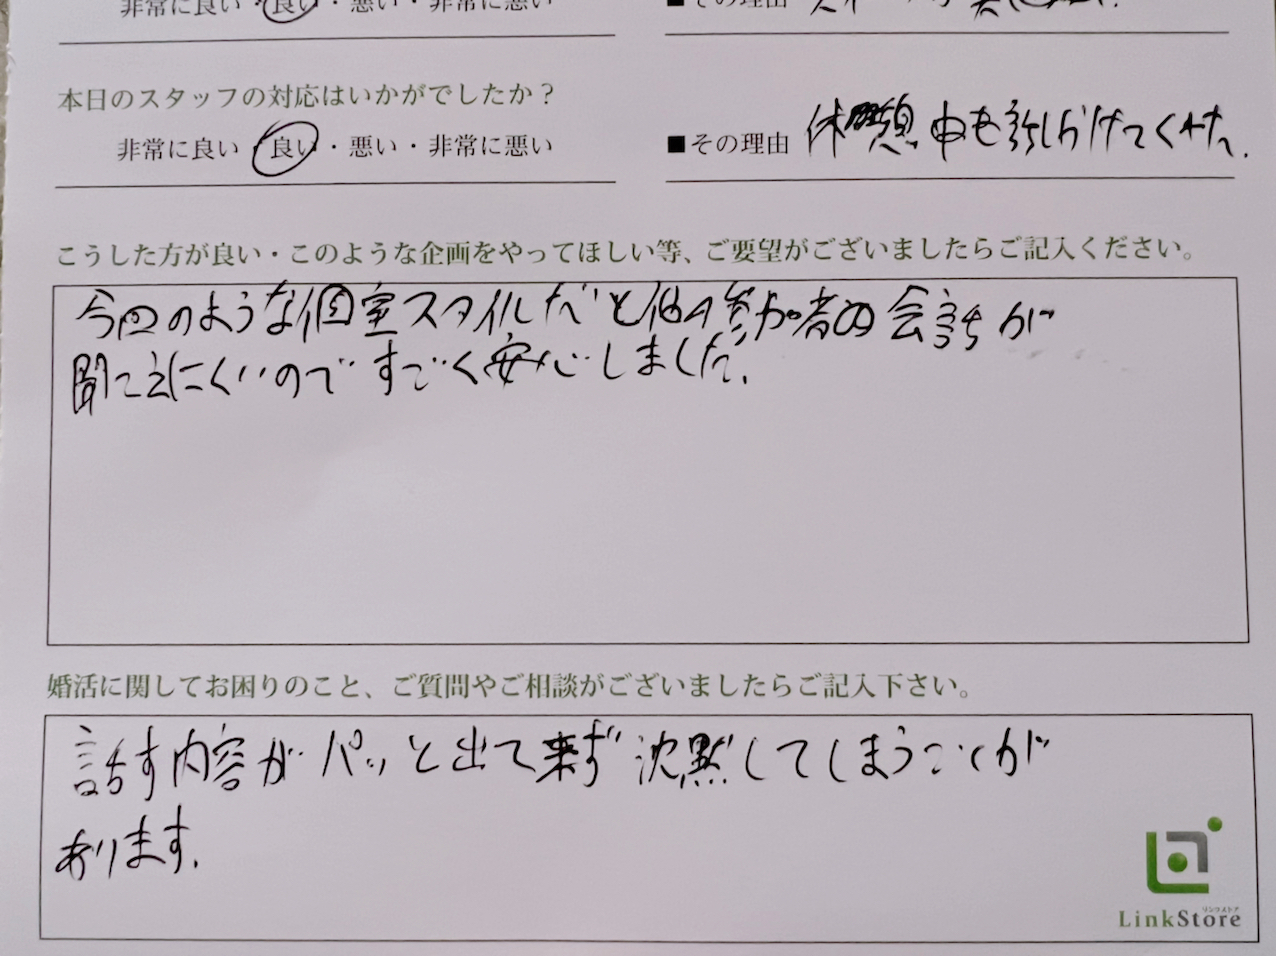 非常に良い・良い・悪い・非常に悪い
■その理由
本日のスタッフの対応はいかがでしたか？
非常に良い・良い・悪い・非常に悪い
■その理由 休憩中も話しかけてくれた.
こうした方が良い・このような企画をやってほしい等、ご要望がございましたらご記入ください。
今回のような個室スタイルだと他の参加者の会話が
聞こえにくいのですごく安心しました.
婚活に関してお困りのこと、ご質問やご相談がございましたらご記入下さい。
話す内容がパッと出て来ず沈黙してしまうことが
あります.
リンクストア
LinkStore